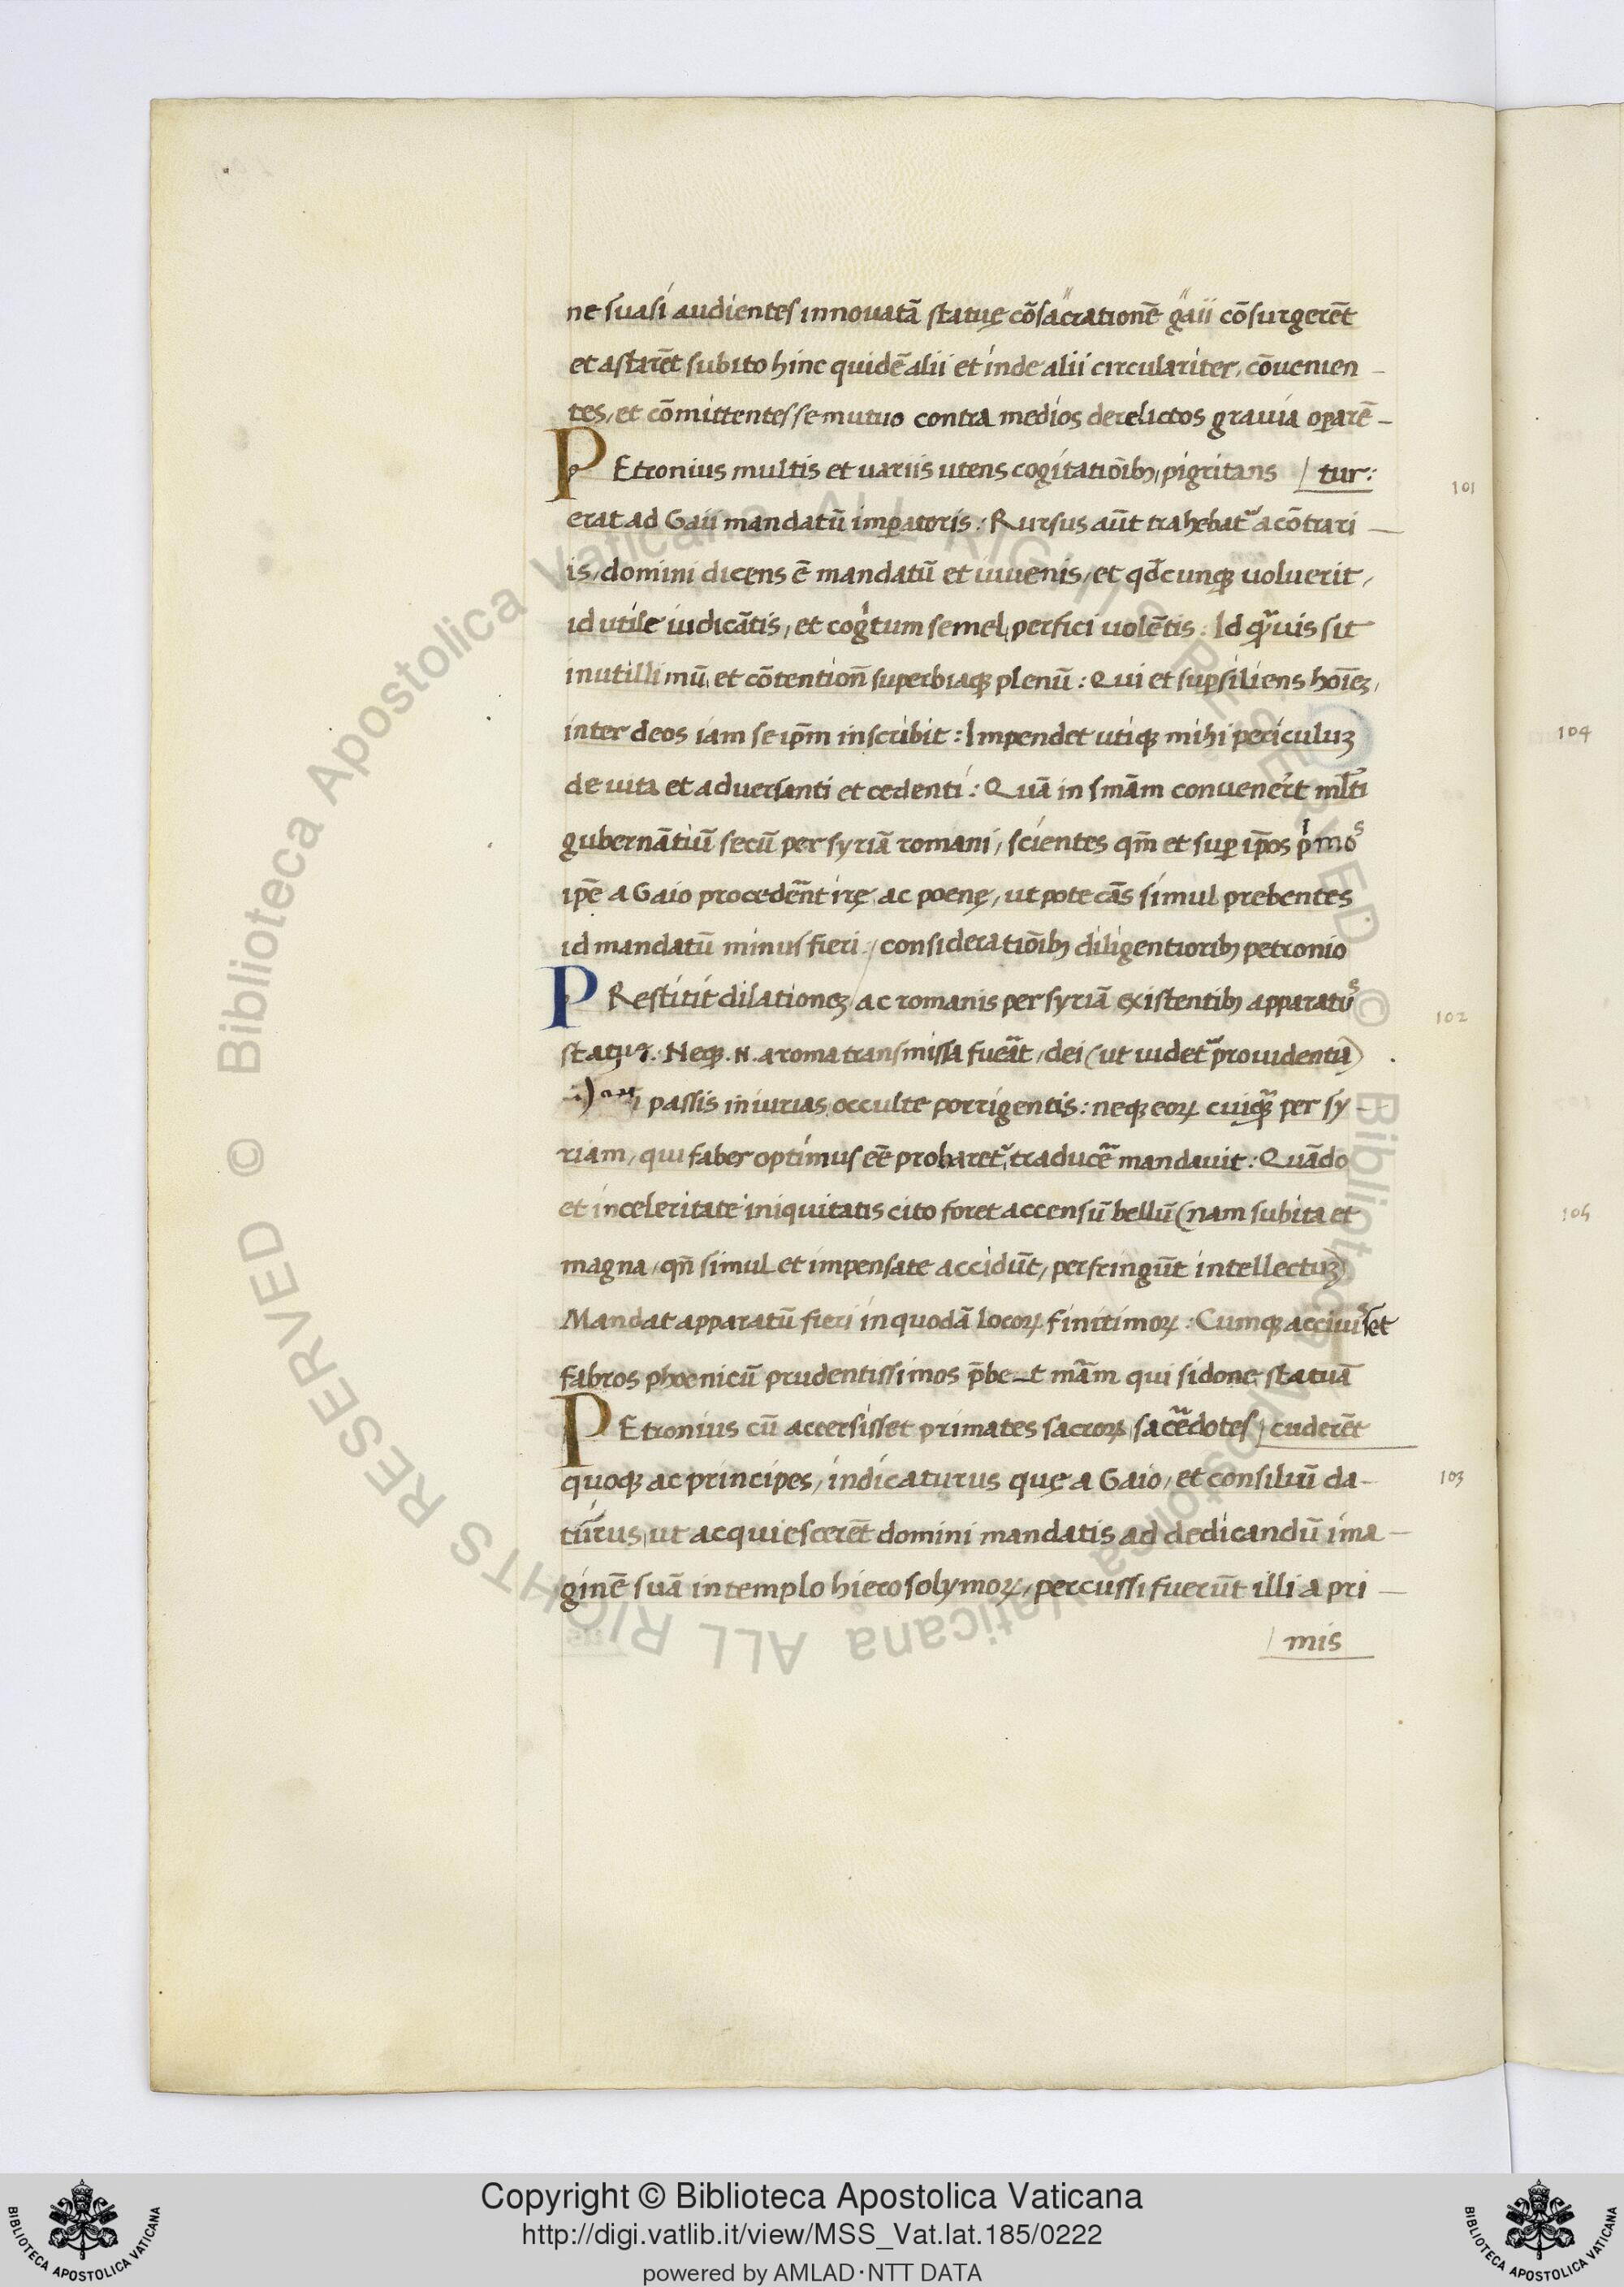 ne suasi audientes innouatā statuę cōsäcrationē gäii cōsurgerēt
et astarēt subito hinc quidē alii et inde alii circulariter, cōuenien-
tes, et cōmittentes se mutuo contra medios derelictos grauia oparē-
PEtronius multis et uariis utens cogitatiōibꝫ, pigritans / tur: 101
erat ad Gaii mandatū impatoris: Rursus aūt trahebat᷑ a cōtrari-
is, domini dicens ē mandatū et iuuenis, et qd̄cunqꝫ uoluerit,
id utile iudicātis, et cogͥtum semel, perfici uolētis: Id qᷓuis sit
inutillimū, et cōtentiōn superbiaqꝫ plenū: Qui et supsiliens hoīeꝫ,
inter deos iam se ip̄m inscribit: Impendet utiqꝫ mihi periculuꝫ 104
de uita et aduersanti et cedenti: Quā in smām conuener̄t ml̄ti
gubernātiū secū per syriā romani, scientes qm̄ et sup ip̄os pͥmoˢ
ip̄e a Gaio procedent̄ irę ac poenę, ut pote cās simul prebentes
id mandatū minus fieri / consideratiōibꝫ diligentioribꝫ petronio
PRestitit dilationeꝫ ac romanis per syriā existentibꝫ apparatuˢ 102
Neqꝫ .N. a roma transmissa fuēat, dei (ut uidet᷑ prouidentia)
passis iniurias occulte porrigentis: neqꝫ eoꝝ cuiqᷓꝫ per sy-
riam, qui faber optimus eē probaret᷑, traducē mandauit: Quādo
et in celeritate iniquitatis cito foret accensū bellū (nam subita et 105
magna, qn̄ simul et impensate accidūt, perfringūt intellectuꝫ)
Mandat apparatū fieri in quodā locoꝝ finitimoꝝ: Cumqꝫ acciuiˢset
fabros phoenicū prudentissimos p̄bet mām qui sidone statuā
PEtronius cū accersisset primates sacroꝝ, sacēdotes / cuderēt
quoqꝫ ac principes, indicaturus quę a Gaio, et consiliū da- 103
turus, ut acquiescerēt domini mandatis ad dedicandū ima-
ginē suā in templo hierosolymoꝝ, percussi fuerūt illi a pri-
/ mis
© Biblioteca Apostolica Vaticana ALL RIGHTS RESERVED © Biblioteca Apostolica Vaticana ALL RIGHTS RESERVED
Copyright © Biblioteca Apostolica Vaticana
http://digi.vatlib.it/view/MSS_Vat.lat.185/0222
powered by AMLAD·NTT DATA
BIBLIOTECA APOSTOLICA VATICANA
BIBLIOTECA APOSTOLICA VATICANA